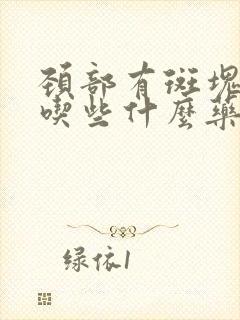 颈部有斑塊
喫些什麼藥
绿依1